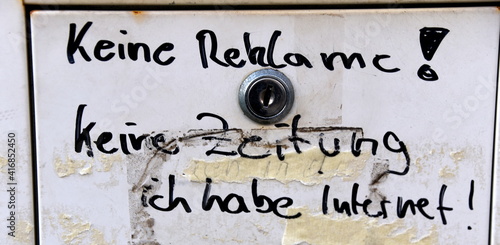 Keine Reklame!
Keine Zeitung
ich habe Internet!
Adobe Stock | #416852450